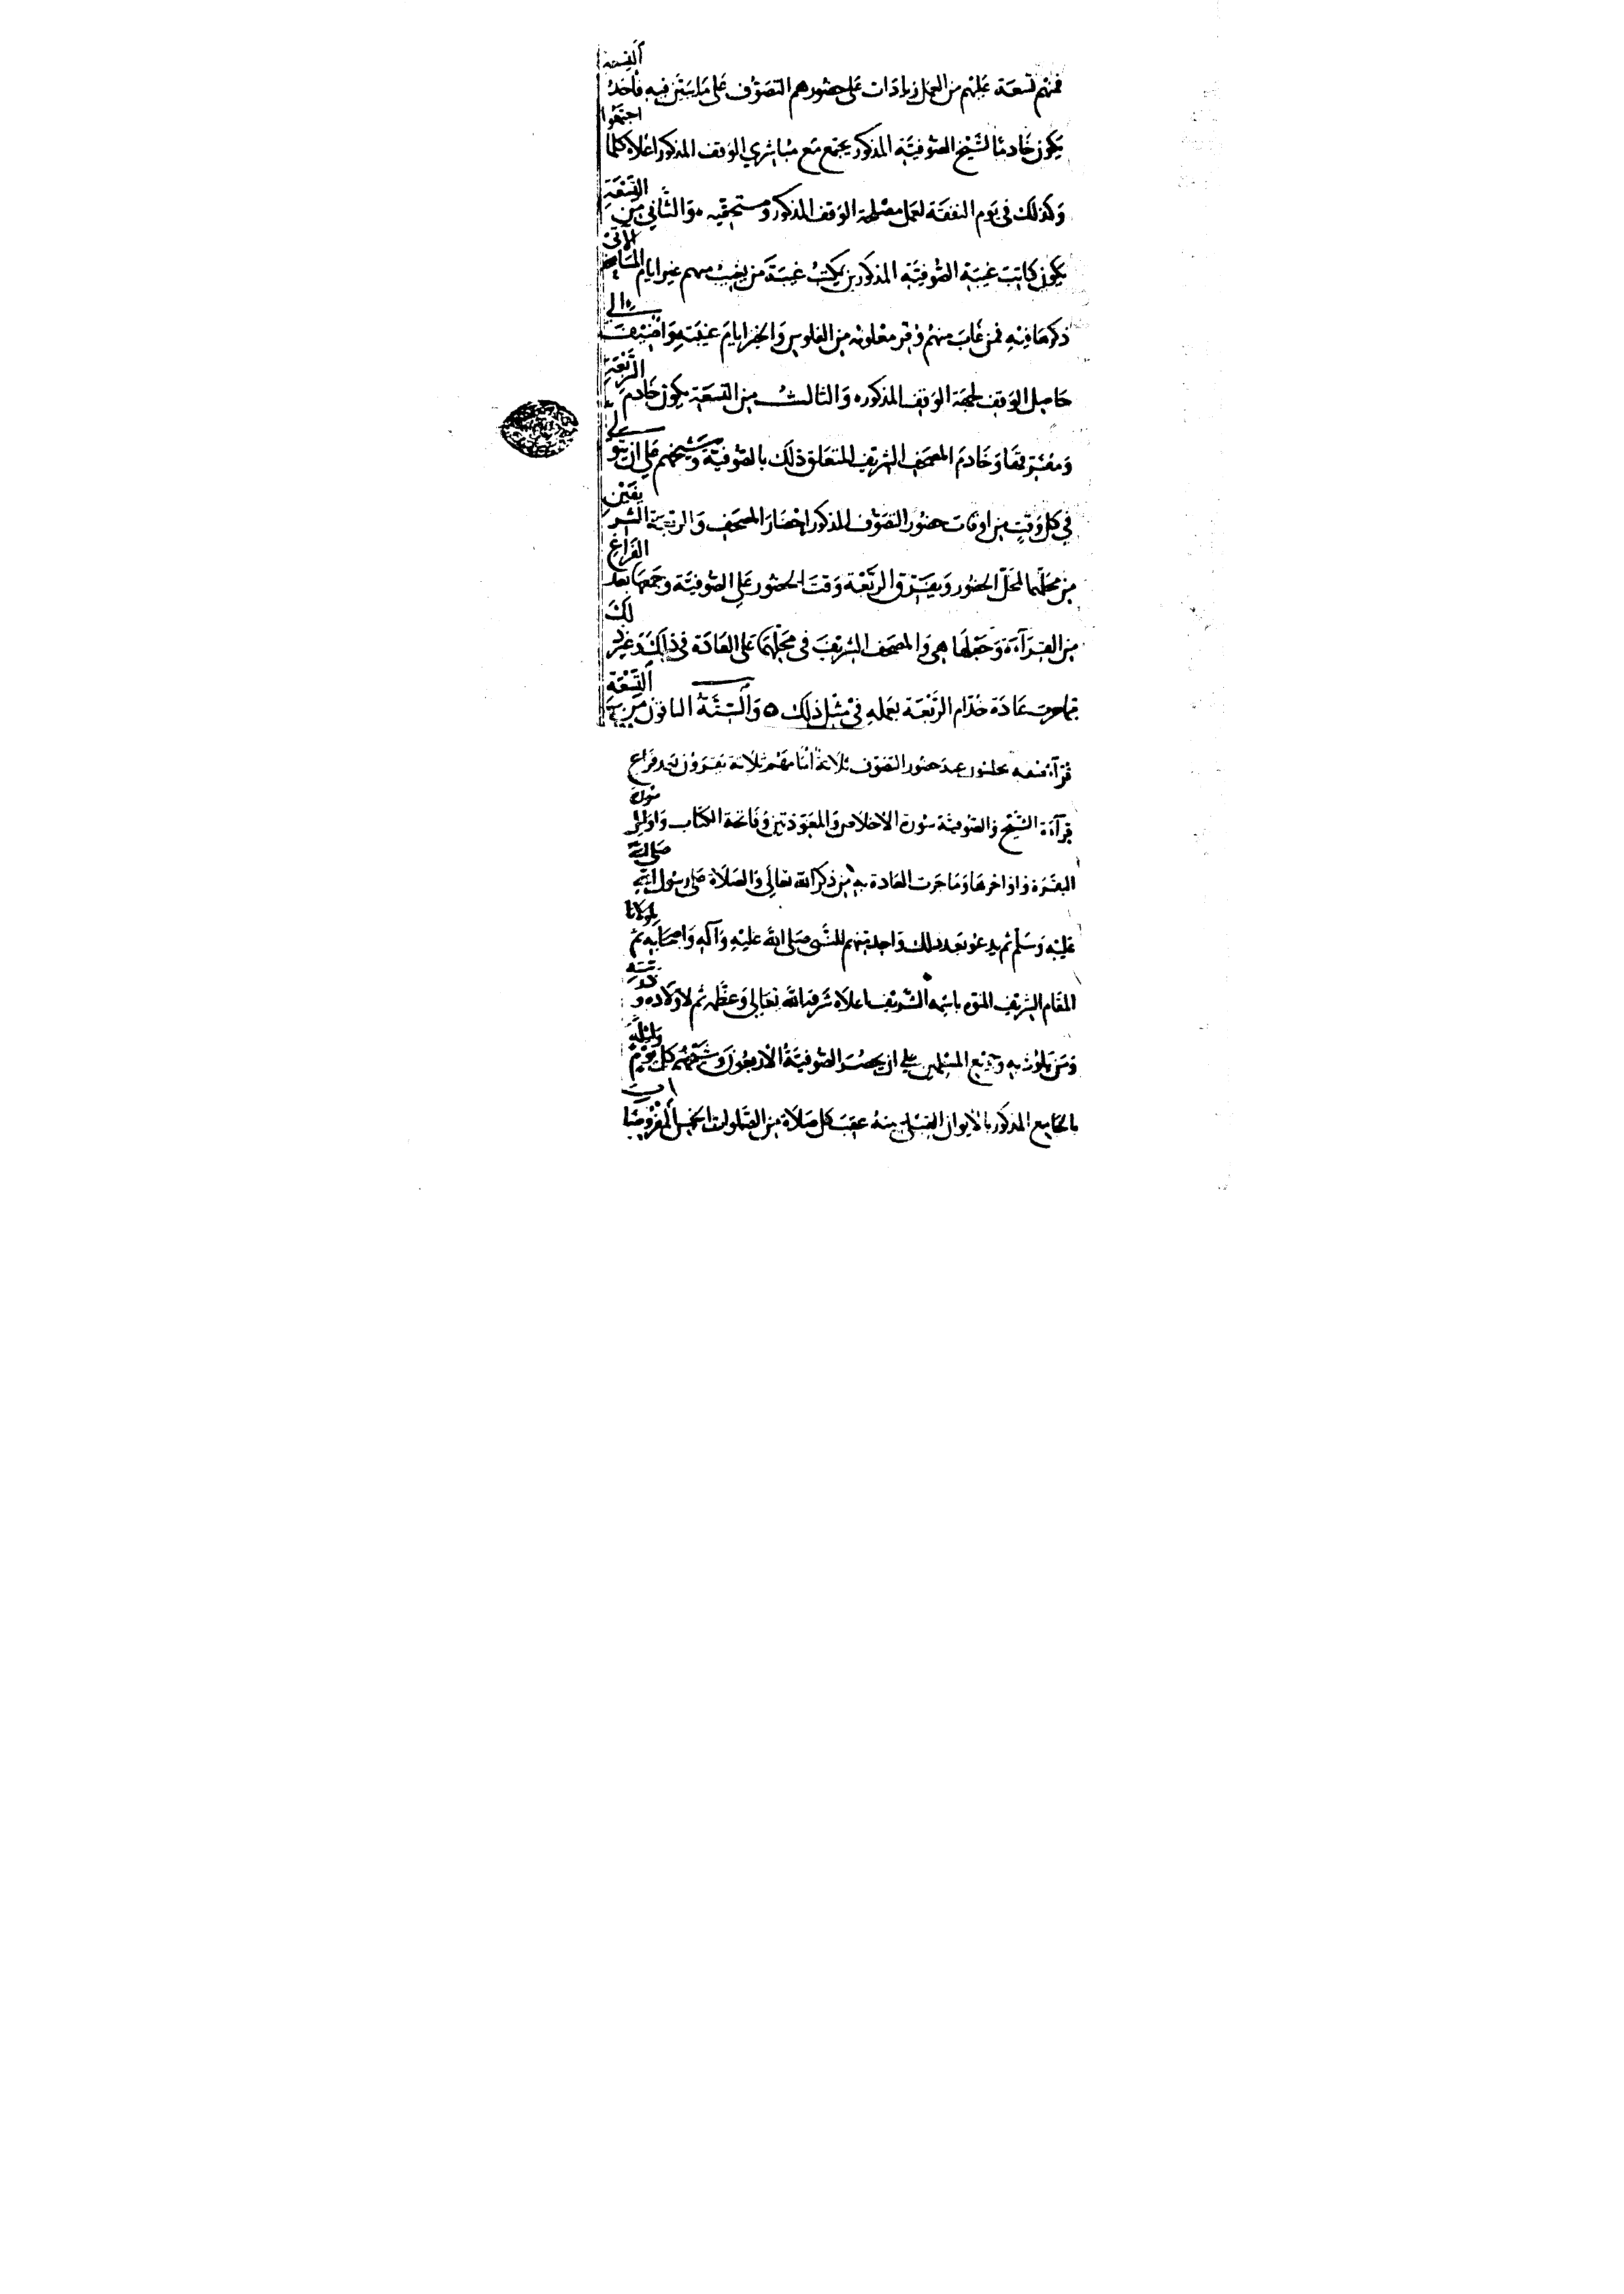 فمنهم تسعة عليهم من العمل زيادات على حضورهم التصوف على ما سيبين فيه فأحد التسعة
يكون خادما لشيخ الصوفية المذكور يجتمع مع مباشري الوقف المذكور اعلاه كلما اجتمعوا
وكذلك في يوم النفقة لعمل مصلحة الوقف المذكور ومستحقيه والثاني من التسعة
يكون كاتب غيبة الصوفية المذكورين يكتب غيبة من يغيب منهم غير ايام المسامحة الآتي
ذكرها فيه فمن غاب منهم وفر معلومه من الفلوس والخبز ايام غيبته واضيف الى
حاصل الوقف لجهة الوقف المذكور والثالث من التسعة يكون خادم الربعة
ومفرقها وخادم المصحف الشريف المتعلق ذلك بالصوفية وشيخهم على ان يتولى
في كل وقت من اوقات حضور التصوف المذكور احضار المصحف والربعة الشريفين
من محلهما لمحل الحضور ويفرق الربعة وقت الحضور على الصوفية وجمعها بعد الفراغ
من القرآءة وجعلها هي والمصحف الشريف في محلهما على العادة في ذلك وغير ذلك
مما جرت عادة خدام الربعة بعمله في مثل ذلك ٥ والستة الباقون من التسعة
قرآء صفة يجلسون عند حضور التصوف ثلاثة ثلاثة يقرؤن بعد فراغ
قرآءة الشيخ والصوفية سورة الاخلاص والمعوذتين وفاتحة الكتاب واوائل سورة
البقرة واواخرها وما جرت العادة به من ذكر الله تعالى والصلاة على رسول الله صلى الله
عليه وسلم ثم يدعو بعد ذلك واحد منهم للنبي صلى الله عليه وآله واصحابه ثم لمولانا
المقام الشريف المنوه باسمه الشريف اعلاه شرفه الله تعالى وعظمه ثم لاولاده وذريته
ومن يلوذ به وجميع المسلمين على ان يحضر الصوفية الاربعون وشيخهم كل يوم وليلة
بالجامع المذكور بالايوان القبلي منه عقب كل صلاة من الصلوات الخمس المفروضات